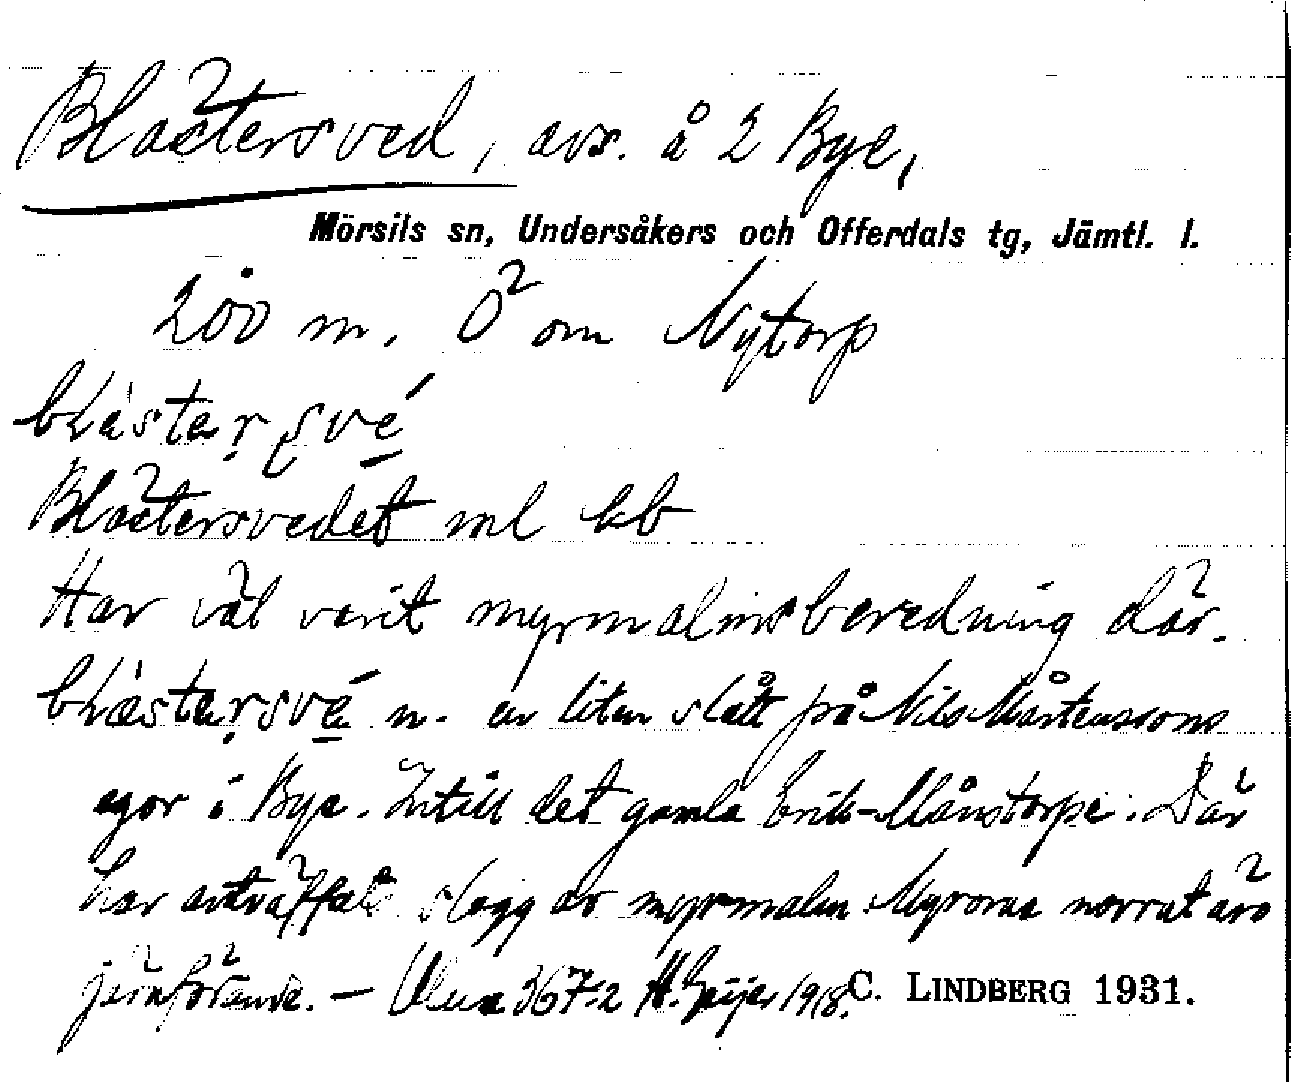 Blästersved, avs. å 2 Bye,
Mörsils sn, Undersåkers och Offerdals tg, Jämtl. l.
200 m. Ö om Nytorp
Blästersvedet ml bb
Har väl varit myrmalmsberedning där.
n. en liten slått på Nils Mårtenssons
ägor i Bye. Intill det gamla Erik-Månstorpe. Där
har anträffats slagg av myrmalm. Myrorna norrut äro
järnförande. — Ulma 367:2 H. Geijer 1918. C. LINDBERG 1931.